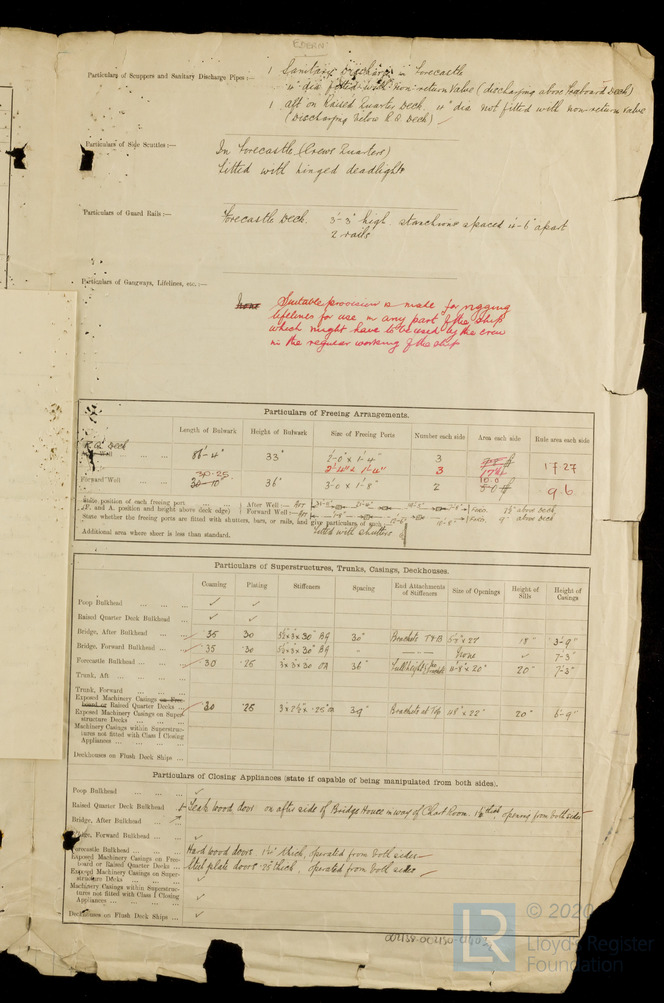 Particulars of Scuppers and Sanitary Discharge Pipes :—
1 Sanitary Discharge in Forecastle
4" dia fitted with non-return Valve (discharging above Freeboard Deck)
1 aft on Raised Quarter Deck. 4" dia not fitted with non-return valve
(Discharging below R.Q. Deck)
Particulars of Side Scuttles :—
In Forecastle (Crews Quarters)
Fitted with hinged deadlights
Particulars of Guard Rails :—
Forecastle Deck. 3'-3" high. stanchions spaced 4'-6" apart
2 rails
Particulars of Gangways, Lifelines, etc. :—
None Suitable provision is made for rigging
lifelines for use in any part of the ship
which might have to be used by the crew
in the regular working of the ship
Particulars of Freeing Arrangements.
Length of Bulwark Height of Bulwark Size of Freeing Ports Number each side Area each side Rule area each side
R.Q. Deck
Well ... ... 86'-4" 33" 2'-0" x 1'-4" 3 17.27
2'-4" x 1'-4" 3
30.25 10.0
Forward Well ... 30'-10" 36" 3'-0 x 1'-8" 2 9.6
State position of each freeing port ... ... After Well :—
(F. and A. position and height above deck edge) Forward Well :—
9" above Deck
State whether the freeing ports are fitted with shutters, bars, or rails, and give particulars of such :—
Fitted with shutters
Additional area where sheer is less than standard.
Particulars of Superstructures, Trunks, Casings, Deckhouses.
Coaming Plating Stiffeners Spacing End Attachments of Stiffeners Size of Openings Height of Sills Height of Casings
Poop Bulkhead ... ... ... ✓ ✓
Raised Quarter Deck Bulkhead ... ✓ ✓
Bridge, After Bulkhead ... ... .35 .30 5½ x 3 x 30" BA 30" Brackets T&B 18" 3'-9"
Bridge, Forward Bulkhead ... .35 .30 5½ x 3 x 30" BA " None ✓ 7'-3"
Forecastle Bulkhead ... ... .30 .25 3 x 3 x 30 OA 36" 4'-8" x 20" 20" 7'-3"
Trunk, Aft ... ... ...
Trunk, Forward ... ... ...
Exposed Machinery Casings on Free-
board or Raised Quarter Decks ... .30 .25 3 x 2½ x .25 OA Brackets at Top 4'8" x 22" 20" 6'-9"
Exposed Machinery Casings on Super-
structure Decks ... ... ...
Machinery Casings within Superstruc-
tures not fitted with Class I Closing
Appliances ... ... ...
Deckhouses on Flush Deck Ships ...
Particulars of Closing Appliances (state if capable of being manipulated from both sides).
Poop Bulkhead ... ... ... ✓
Raised Quarter Deck Bulkhead Teak wood door on after side of Bridge House in way of Chart Room. 1½" thick, opening from both sides
Bridge, After Bulkhead ...
Bridge, Forward Bulkhead ... ✓
Forecastle Bulkhead ... ... Hard wood doors 1½" thick, operated from both sides
Exposed Machinery Casings on Free-
board or Raised Quarter Decks ... Steel plate doors .25" thick, operated from both sides
Exposed Machinery Casings on Super-
structure Decks ... ... ✓
Machinery Casings within Superstruc-
tures not fitted with Class I Closing
Appliances ... ... ✓
Deckhouses on Flush Deck Ships ... ✓
LR
© 2020
Lloyd's Register
Foundation